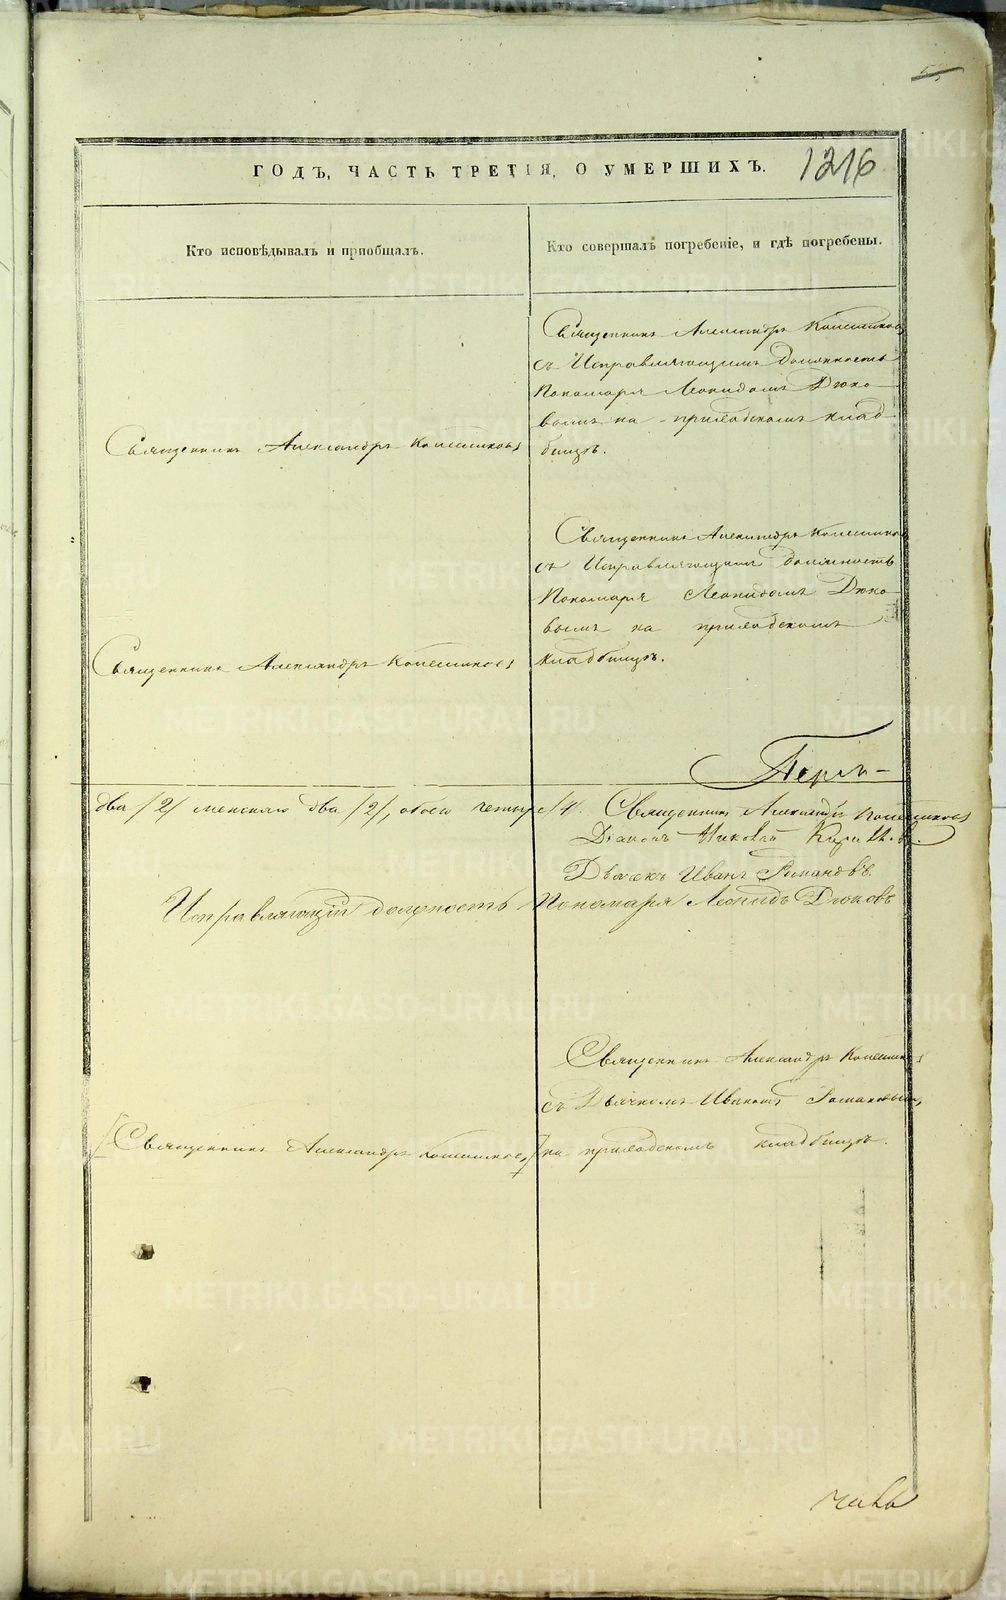 1216
ГОДЪ, ЧАСТЬ ТРЕТІЯ, О УМЕРШИХЪ.
Кто исповѣдывалъ и пріобщалъ.
Кто совершалъ погребеніе, и гдѣ погребены.
Священникъ Александръ
Священникъ Александръ
съ Исправляющимъ должность
Пономаря Леонидомъ Дюко-
вымъ на приходскомъ клад-
бищѣ.
Священникъ Александръ
Священникъ Александръ
съ Исправляющимъ должность
Пономаря Леонидомъ Дюко-
вымъ на приходскомъ
кладбищѣ.
два /2/ женска два /2/, обоего четыре /4/.
Священникъ Александръ
Діаконъ Николай
Дьячекъ Иванъ Романовъ.
Исправляющій должность Пономаря Леонидъ Дюковъ
Священникъ Александръ
Священникъ Александръ
съ Дьячкомъ Иваномъ Романовымъ
на приходскомъ кладбищѣ.
METRIKI.GASO-URAL.RU